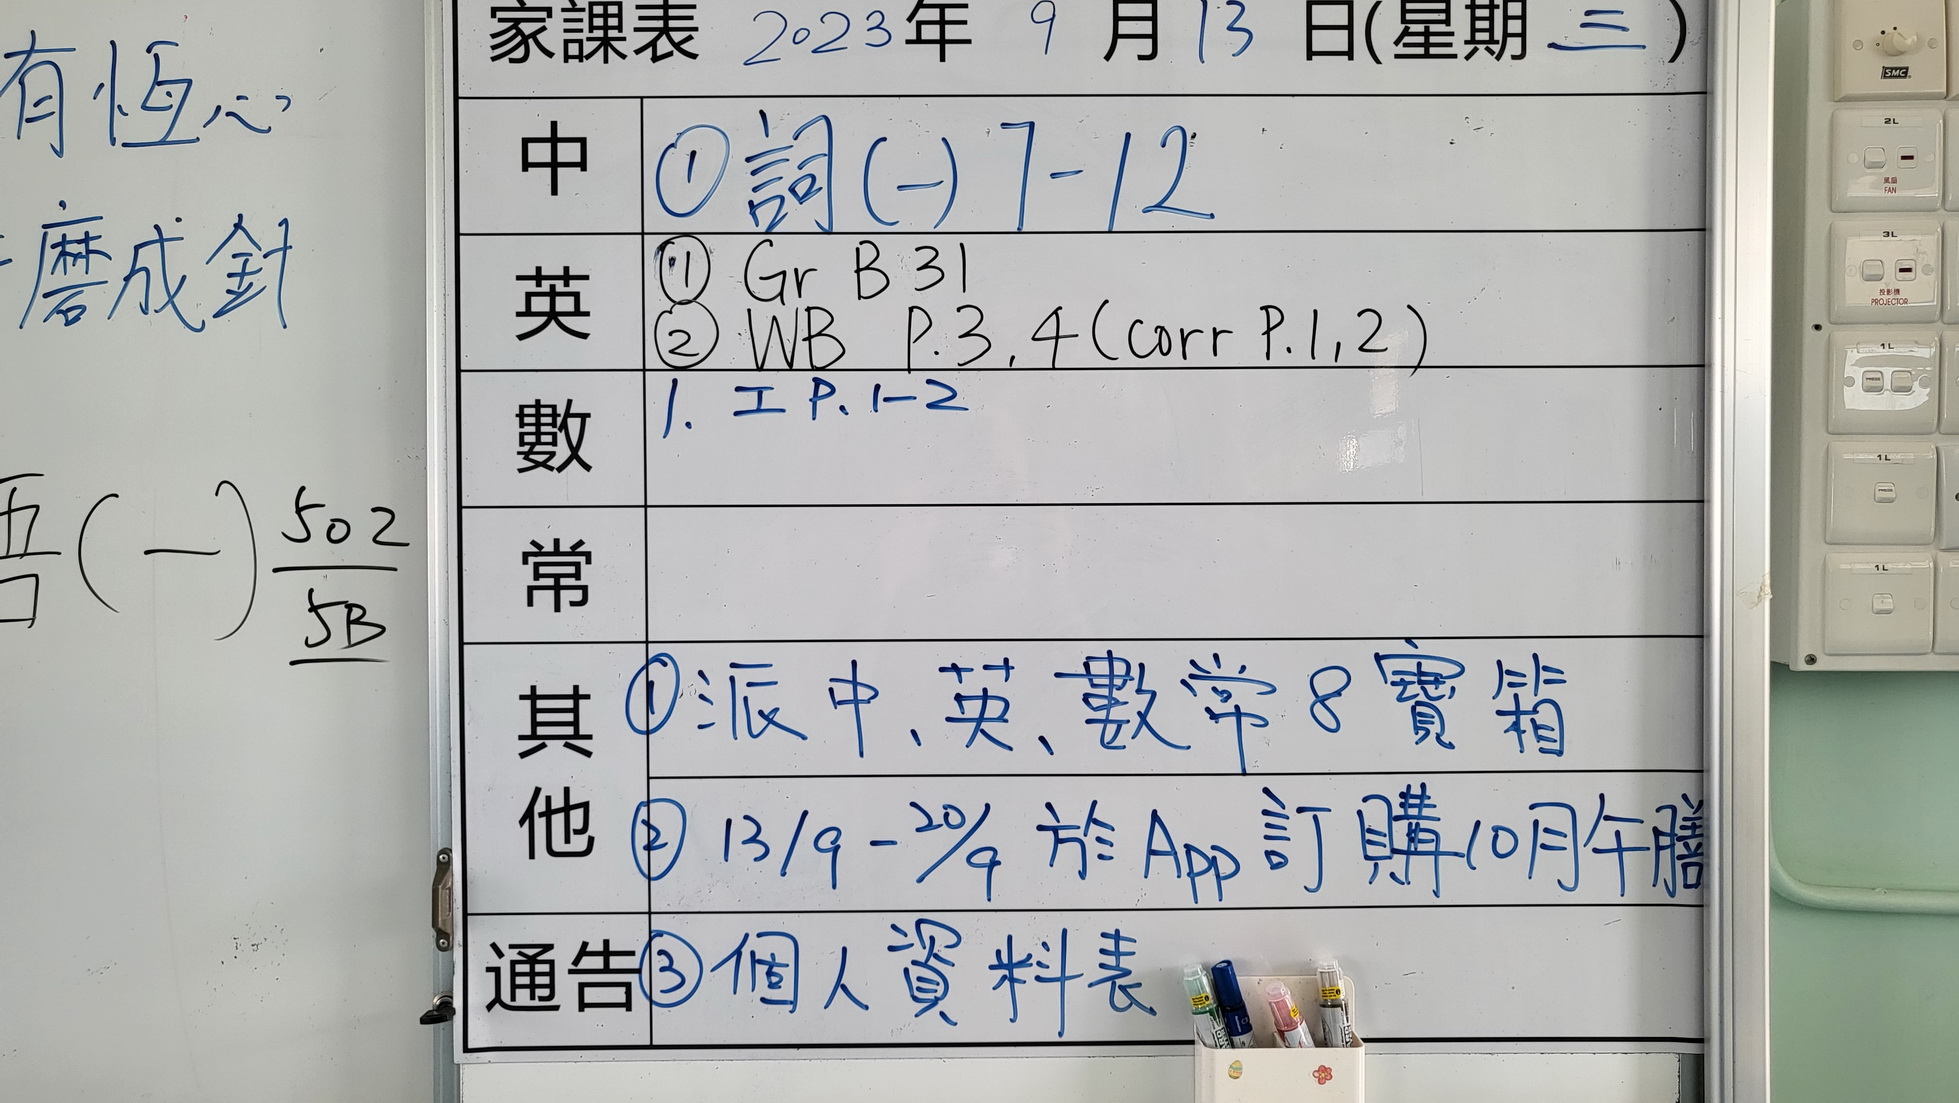 有恆心
磨成針
(一) 502
5B
家課表 2023年 9 月 13 日(星期 三)
中 ① 詞(一) 7-12
英 ① Gr B 31
② WB P.3,4(corr P.1,2)
數 1. 工 P.1-2
常
其他 ① 派中、英、數常8寶箱
② 13/9-20/9 於App訂購10月午膳
通告 ③ 個人資料表
SMC
2L
風扇
FAN
3L
投影機
PROJECTOR
1L
1L
1L